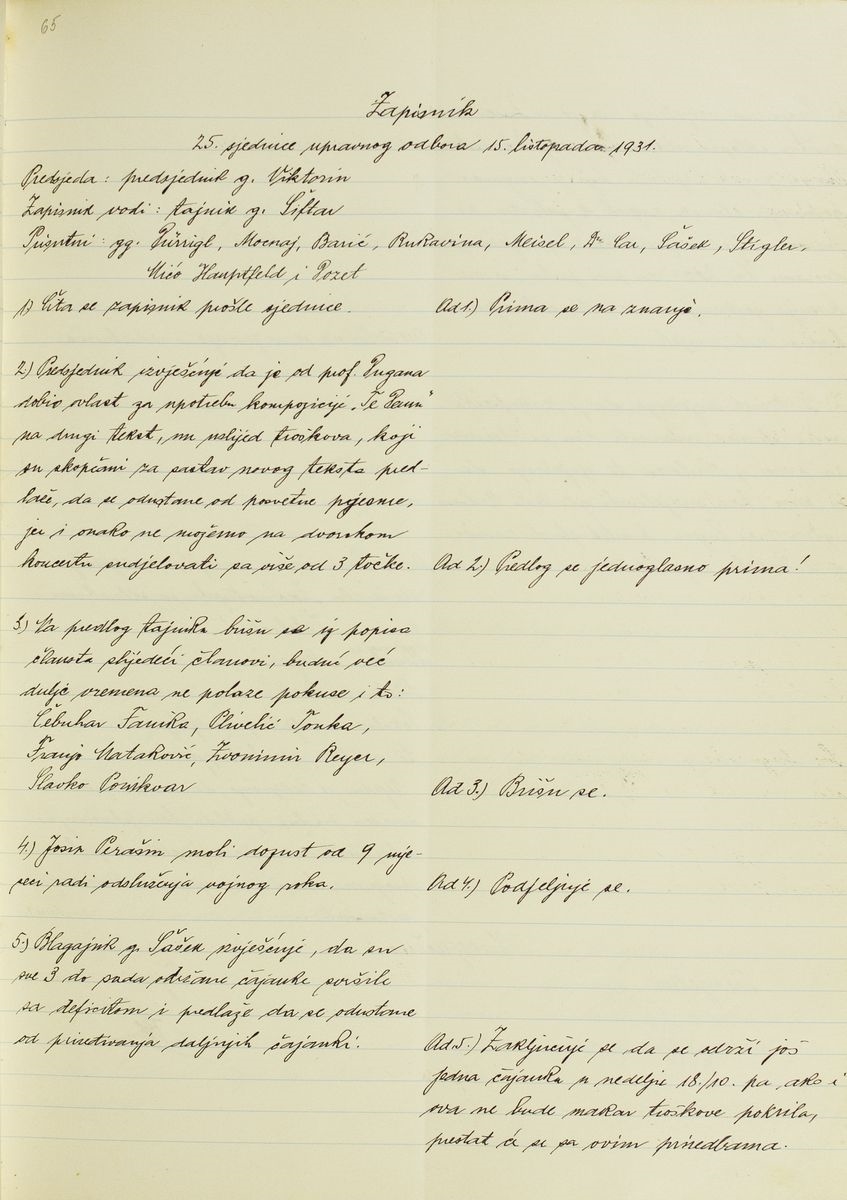 65
Zapisnik
25. sjednice upravnog odbora 15. listopada 1931.
Predsjeda: predsjednik g. Viktorin
Zapisnik vodi: tajnik g. Šiftar
Prisutni: gg. Pürrigl, Mocnaj, Barić, Rukavina, Meisel, Dr Car, Šašek, Stigler,
Mićo Hauptfeld i Pozet
1) Čita se zapisnik prošle sjednice.
Ad 1.) Prima se na znanje.
2.) Predsjednik izvješćuje da je od prof. Dugana
dobio vlast za upotrebu kompozicije „Te Deum"
na drugi tekst, nu uslijed troškova, koji
su skopčani za sastav novog teksta pred-
laže, da se odustane od posvetne pjesme,
jer i onako ne možemo na dvorskom
koncertu sudjelovati sa više od 3 točke.
Ad 2.) Predlog se jednoglasno prima!
3.) Na predlog tajnika brišu se iz popisa
članstva slijedeći članovi, budući već
dulje vremena ne polaze pokuse i to:
Čebuhar Fanika, Plivelić Tonka,
Franjo Mataković, Zvonimir Reyer,
Slavko Ponikvar
Ad 3.) Brišu se.
4.) Josip Perašin moli dopust od 9 mje-
seci radi odsluženja vojnog roka.
Ad 4.) Podjeljuje se.
5.) Blagajnik g. Šašek izvješćuje, da su
sve 3 do sada održane čajanke svršile
sa deficitom i predlaže da se odustane
od priređivanja daljnjih čajanki.
Ad. 5.) Zaključuje se da se održi još
jedna čajanka u nedelju 18./10. pa ako i
ova ne bude makar troškove pokrila,
prestat će se sa ovim priredbama.